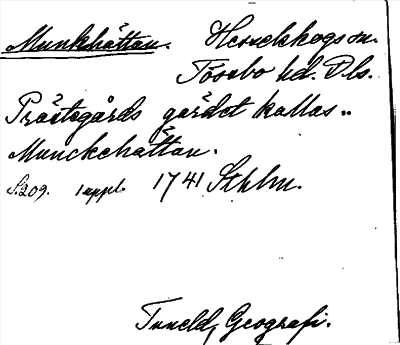 Munkhättan. Herrekkogs sn.
Tössbo hd. Dls.
Prästegårds gärdet kallas..
Munckehättan.
S. 209. 1 uppl. 1741 Sthlm.
Tuneld, Geografi.